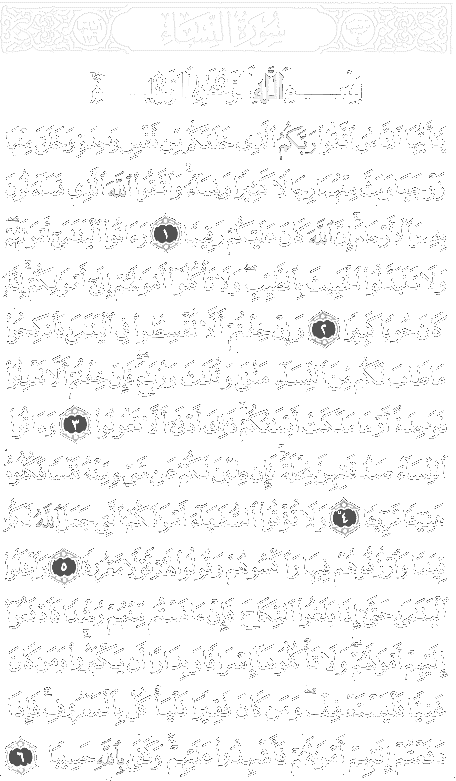 سورة النساء
بسم الله الرحمن الرحيم
يا أيها الناس اتقوا ربكم الذي خلقكم من نفس واحدة وخلق منها
زوجها وبث منهما رجالا كثيرا ونساء واتقوا الله الذي تساءلون
به والأرحام إن الله كان عليكم رقيبا ١ وآتوا اليتامى أموالهم
ولا تتبدلوا الخبيث بالطيب ولا تأكلوا أموالهم إلى أموالكم إنه
كان حوبا كبيرا ٢ وإن خفتم ألا تقسطوا في اليتامى فانكحوا
ما طاب لكم من النساء مثنى وثلاث ورباع فإن خفتم ألا تعدلوا
فواحدة أو ما ملكت أيمانكم ذلك أدنى ألا تعولوا ٣ وآتوا
النساء صدقاتهن نحلة فإن طبن لكم عن شيء منه نفسا فكلوه
هنيئا مريئا ٤ ولا تؤتوا السفهاء أموالكم التي جعل الله لكم
قياما وارزقوهم فيها واكسوهم وقولوا لهم قولا معروفا ٥ وابتلوا
اليتامى حتى إذا بلغوا النكاح فإن آنستم منهم رشدا فادفعوا
إليهم أموالهم ولا تأكلوها إسرافا وبدارا أن يكبروا ومن كان
غنيا فليستعفف ومن كان فقيرا فليأكل بالمعروف فإذا
دفعتم إليهم أموالهم فأشهدوا عليهم وكفى بالله حسيبا ٦